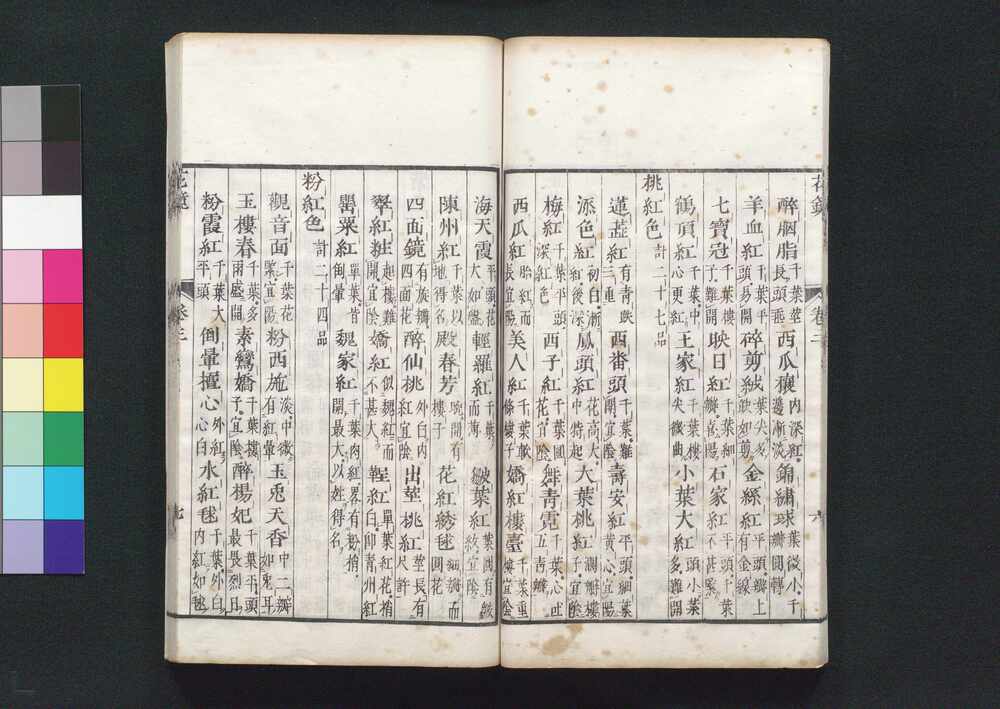 花鏡 卷三 六
醉胭脂 千葉莖長頭垂 西瓜穰 內深紅邊漸淡 錦繡球 葉微小千瓣圓轉
羊血紅 千葉平頭易開 碎剪絨 葉尖多缺如剪 金絲紅 平頭瓣上有金線
七寶冠 千葉樓子難開 映日紅 千葉細瓣喜陽 石家紅 平頭千葉不甚緊
鶴頂紅 千葉中心更紅 王家紅 千葉樓尖微曲 小葉大紅 頭小葉多難開
桃紅色 計二十七品
蓮蕋紅 有青趺三重 西番頭 千葉難開宜陰 壽安紅 平頭細葉黃心宜陽
添色紅 初白漸紅後深 鳳頭紅 花高大中特起 大葉桃紅 濶瓣樓子宜陰
梅紅 千葉平頭深紅色 西子紅 千葉圓花宜陰 舞青霓 千葉心吐五青瓣
西瓜紅 胎紅而長宜陽 美人紅 千葉軟條樓子 嬌紅樓臺 千葉重樓宜陰
海天霞 平頭花大如盤 輕羅紅 千葉而薄 皺葉紅 葉圓有皺紋宜陰
陳州紅 千葉以地得名 殿春芳 晚開有樓子 花紅綉毬 細瓣而圓花
四面鏡 有旋瓣四面花 醉仙桃 外白內紅宜陰 出莖桃紅 莖長有尺許
翠紅粧 起樓難開宜陰 嬌紅 似魏紅而不甚大 鞓紅 單葉紅花稍白卽青州紅
罌粟紅 單葉皆倒暈 魏家紅 千葉肉紅畧有粉梢開最大以姓得名
粉紅色 計二十四品
觀音面 千葉花緊宜陽 粉西施 淡中微有紅暈 玉兎天香 中二瓣如兎耳
玉樓春 千葉多雨盛開 素鸞嬌 千葉樓子宜陰 醉楊妃 千葉平頭最畏烈日
粉霞紅 千葉大平頭 倒暈檀心 外紅心白 水紅毬 千葉外白內紅如毬
花鏡 卷三 七